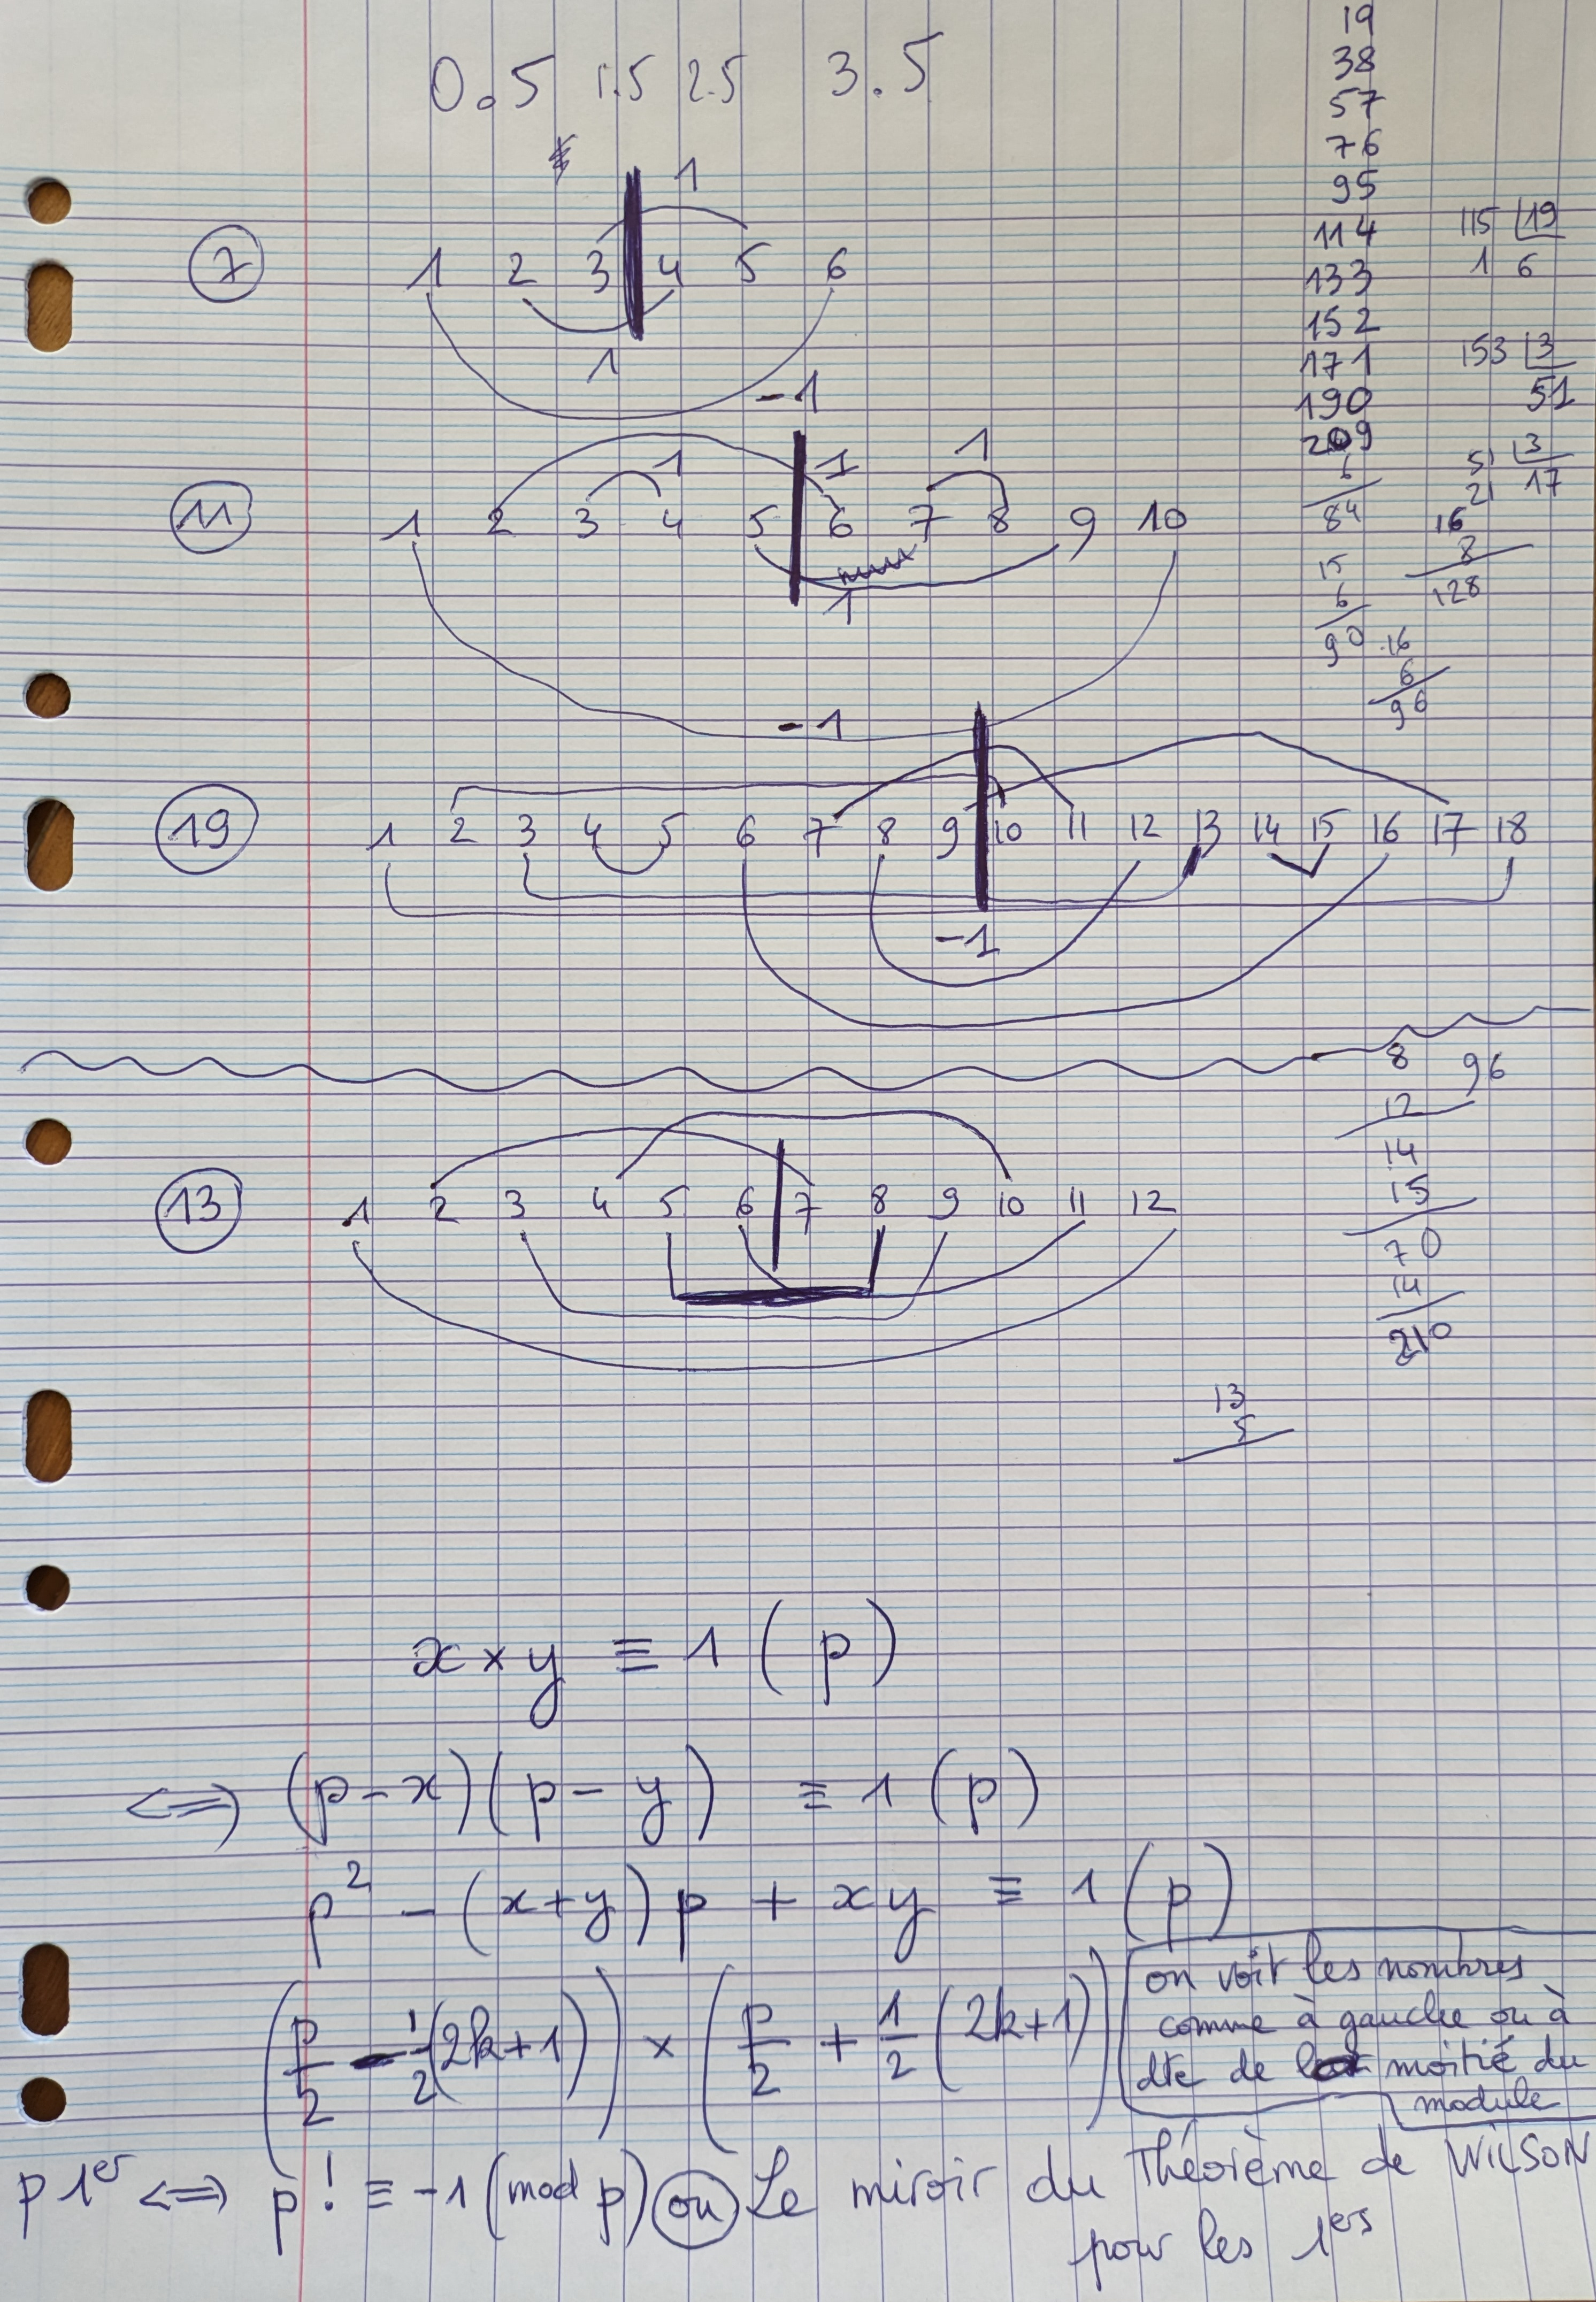 0.5 1.5 2.5 3.5
1
7 1 2 3 4 5 6
1
-1
1 1 1
11 1 2 3 4 5 6 7 8 9 10
1
-1
19 1 2 3 4 5 6 7 8 9 10 11 12 13 14 15 16 17 18
-1
13 1 2 3 4 5 6 7 8 9 10 11 12
19
38
57
76
95
114
133
152
171
190
209
6
84
15
6
90
115 19
1 6
153 3
51
51 3
21 17
16
8
128
16
6
96
8 96
12
14
15
70
14
210
13
5
x × y ≡ 1 (p)
⟺ (p - x)(p - y) ≡ 1 (p)
p² - (x+y)p + xy ≡ 1 (p)
(p/2 - 1/2(2k+1)) × (p/2 + 1/2(2k+1))
on voit les nombres
comme à gauche ou à
dte de la moitié du
module
p 1er ⟺ p! ≡ -1 (mod p) ou Le miroir du Théorème de WILSON
pour les 1ers